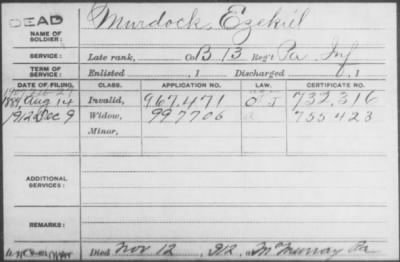 DEAD
NAME OF SOLDIER: Murdock, Ezekiel
SERVICE: Late rank, Co B, 13 Reg't Pa. Inf
TERM OF SERVICE: Enlisted , 1 Discharged , 1
DATE OF FILING. CLASS. APPLICATION NO. LAW. CERTIFICATE NO.
Aug 14 Invalid, 967,471 732,316
1912 Dec 9 Widow, 997706 755423
Minor,
ADDITIONAL SERVICES:
REMARKS:
Died Nov 12, 912, at McMurray Pa